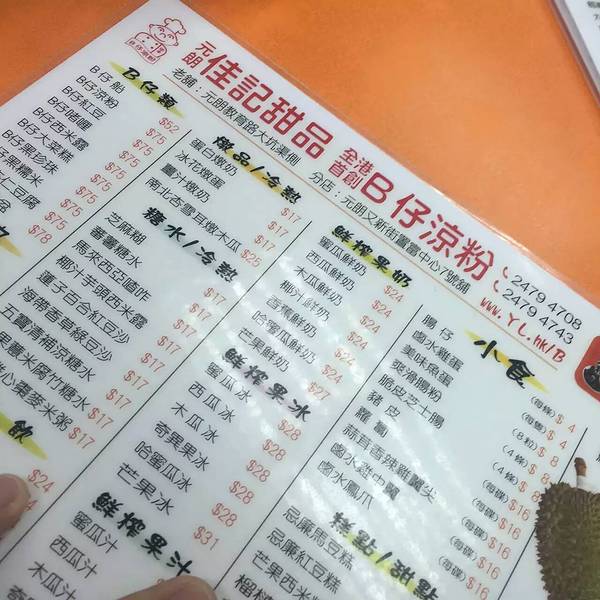 元朗 佳記甜品 全港首創 B仔涼粉
老舖：元朗教育路大坑渠側 分店：元朗又新街置富中心7號舖
2479 4708
2479 4743
www.YL.hk/B
B仔類
B仔船 $52
B仔涼粉 $75
B仔紅豆 $75
B仔啫喱 $75
B仔西米露 $75
B仔大菜糕 $75
仔黑珍珠 $75
仔黑糯米 $75
仁豆腐 $78
蛋白燉奶 $17
冰花燉蛋 $17
薑汁燉奶 $17
南北杏雪耳燉木瓜 $25
糖水/冷熱
芝麻糊 $17
番薯糖水 $17
馬來西亞喳咋 $17
椰汁芋頭西米露 $17
蓮子百合紅豆沙 $17
海帶香皂綠豆沙 $17
五寶清補涼糖水 $17
薏米腐竹糖水 $17
麥米粥 $17
$24
鮮榨果奶
蜜瓜鮮奶 $24
西瓜鮮奶 $24
木瓜鮮奶 $24
椰汁鮮奶 $24
香蕉鮮奶 $24
哈蜜瓜鮮奶 $24
芒果鮮奶 $27
鮮榨果冰
蜜瓜冰 $28
西瓜冰 $28
木瓜冰 $28
奇異果冰 $28
哈蜜瓜冰 $28
芒果冰 $31
鮮榨果汁
蜜瓜汁
西瓜汁
木瓜汁
奇異果汁
小食
腸仔 (每條) $4
鹵水雞蛋 (每隻) $4
美味魚蛋 (8粒) $8
爽滑腸粉 (4條) $8
脆皮芝士腸
豬皮
蘿蔔
蒜茸香辣雞翼尖 $16
鹵水雞中翼 $16
鹵水鳳爪 $16
忌廉馬豆糕
忌廉紅豆糕
芒果西米